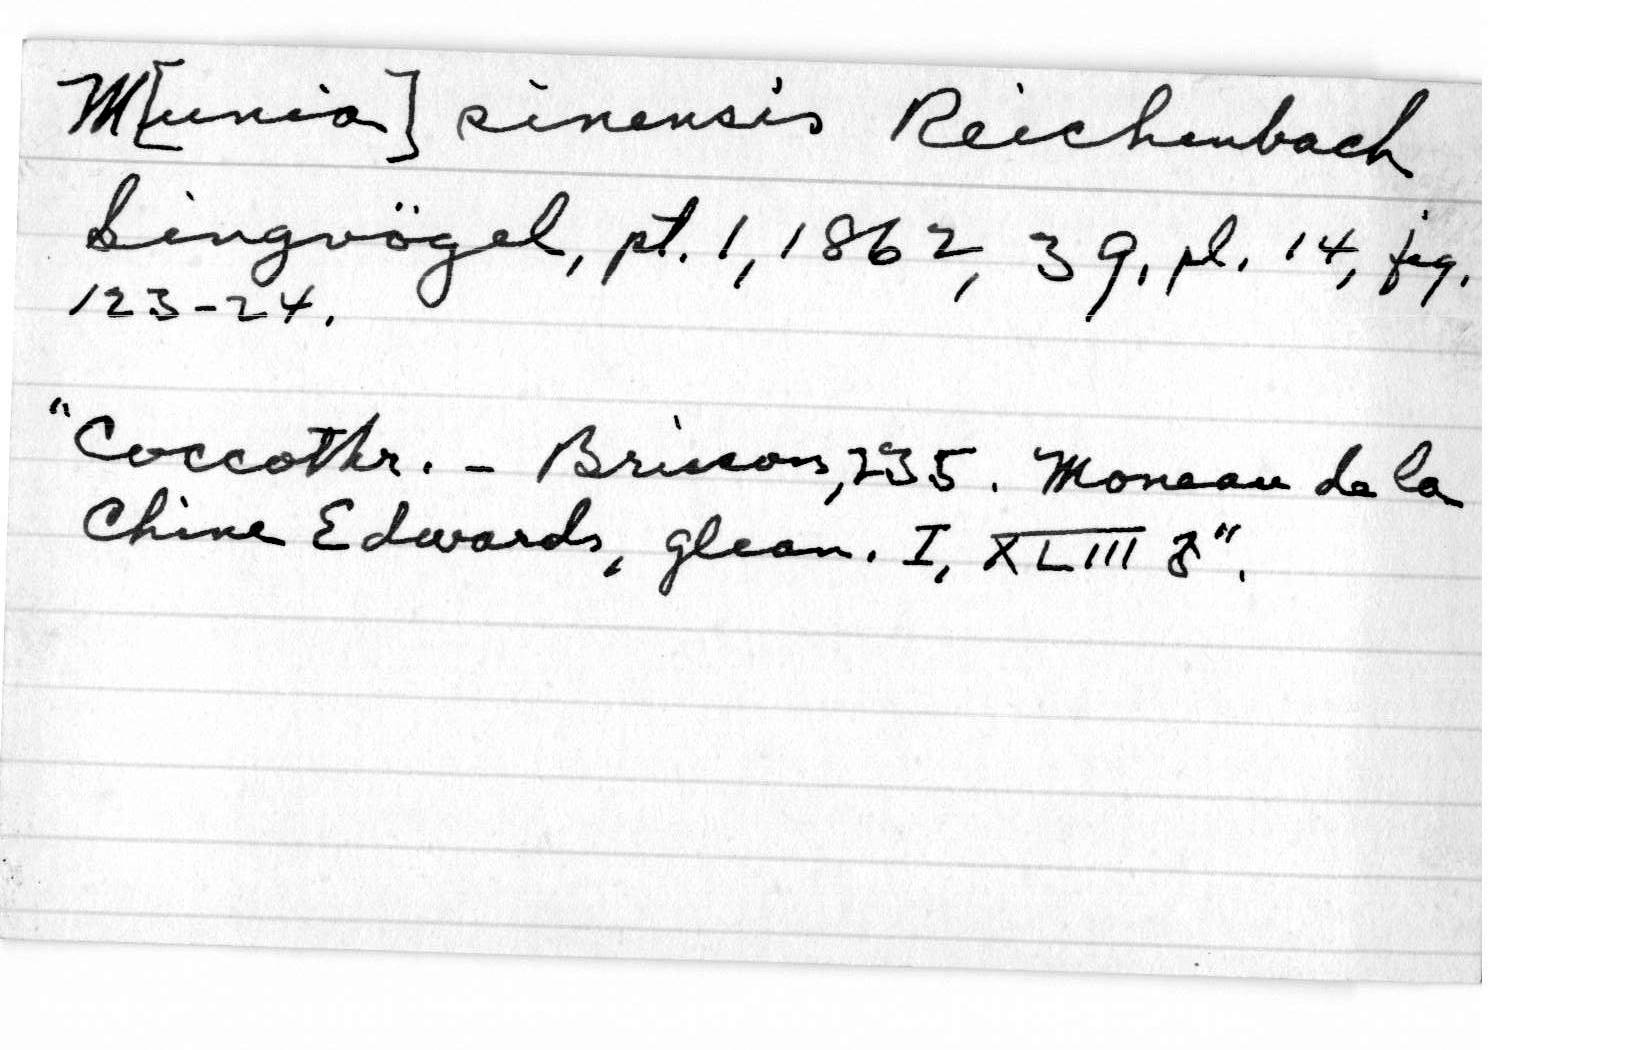 M[unia] sinensis Reichenbach
Singvögel, pt. 1, 1862, 39, pl. 14, fig.
123-24.
"Coccothr. - Brisson, 235. Moneau de la
Chine Edwards, glean. I, XLIII